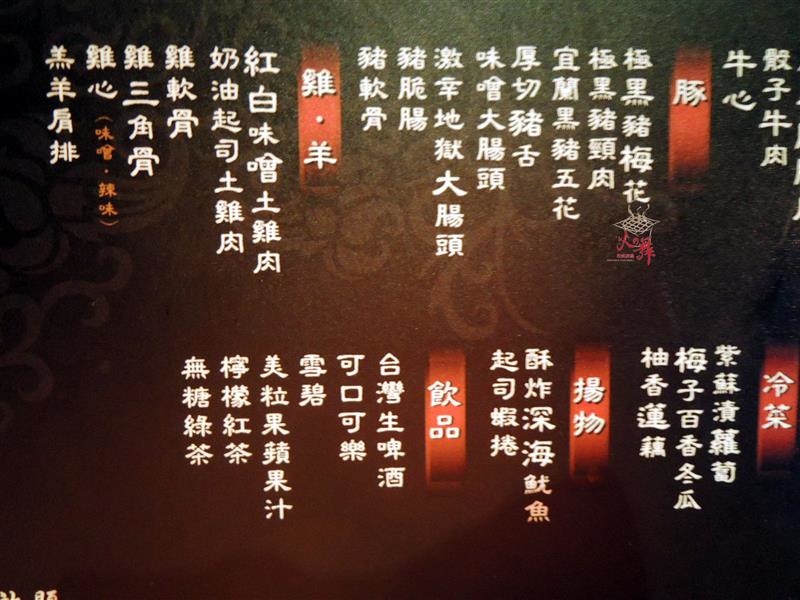 骰子牛肉
牛心
豚
極黑豬梅花
極黑豬頸肉
宜蘭黑豬五花
厚切豬舌
味噌大腸頭
激幸地獄大腸頭
豬脆腸
豬軟骨
雞・羊
紅白味噌土雞肉
奶油起司土雞肉
雞軟骨
雞三角骨
雞心（味噌・辣味）
羔羊肩排
冷菜
紫蘇漬蘿蔔
梅子百香冬瓜
柚香蓮藕
揚物
酥炸深海魷魚
起司蝦捲
飲品
台灣生啤酒
可口可樂
雪碧
美粒果蘋果汁
檸檬紅茶
無糖綠茶
火の舞